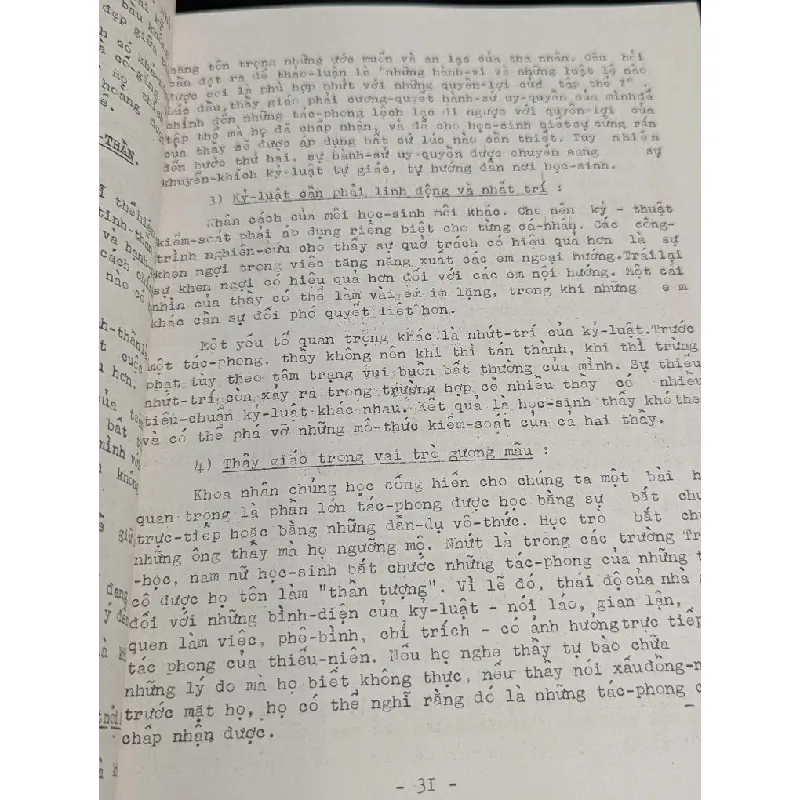 năng tôn trọng những ước muốn và an lạc của tha nhân. Câu hỏi
cần đặt ra để thảo-luận là "những hành-vi và những luật lệ nào
được coi là phù hợp nhứt với những quyền-lợi của tập thể ?"
Lúc đầu, thầy giáo phải cương-quyết hành-sử uy-quyền của mình để
chỉnh đốn những tác-phong lệch lạc đi ngược với quyền-lợi của
tập thể mà họ đã chấp nhận, và để cho học-sinh biết sự cứng rắn
của thầy sẽ được áp dụng bất cứ lúc nào cần thiết. Tuy nhiên
đến bước thứ hai, sự hành-sử uy-quyền được chuyển sang sự
khuyến-khích kỷ-luật tự giác, tự hướng dẫn nơi học-sinh.
3) Kỷ-luật cần phải linh động và nhất trí :
Nhân cách của mỗi học-sinh mỗi khác. Cho nên kỹ - thuật
kiểm-soát phải áp dụng riêng biệt cho từng cá-nhân. Các công-
trình nghiên-cứu cho thấy sự quở trách có hiệu quả hơn là sự
khen ngợi trong việc tăng năng xuất các em ngoại hướng. Trái lại
sự khen ngợi có hiệu quả hơn đối với các em nội hướng. Một cái
nhìn của thầy có thể làm vài em im lặng, trong khi những em
khác cần sự đối phó quyết liệt hơn.
Một yếu tố quan trọng khác là nhứt-trí của kỷ-luật. Trước
một tác-phong, thầy không nên khi thì tán thành, khi thì trừng
phạt tùy theo tâm trạng vui buồn bất thường của mình. Sự thiếu
nhứt-trí còn xảy ra trong trường hợp có nhiều thầy có nhiều
tiêu-chuẩn kỷ-luật khác nhau. Kết quả là học-sinh thấy khó the
và có thể phá vỡ những mô-thức kiểm-soát của cả hai thầy.
4) Thầy giáo trong vai trò gương mẫu :
Khoa nhân chủng học cống hiến cho chúng ta một bài h
quan trọng là phần lớn tác-phong được học bằng sự bắt chư
trực-tiếp hoặc bằng những dẫn-dụ vô-thức. Học trò bắt ch
những ông thầy mà họ ngưỡng mộ. Nhứt là trong các trường Tr
-học, nam nữ học-sinh bắt chước những tác-phong của những t
cô được họ tôn làm "thần tượng". Vì lẽ đó, thái độ của nhà
đối với những bình-diện của kỷ-luật - nói láo, gian lận,
quen làm việc, phê-bình, chỉ trích - có ảnh hưởng trực tiếp
tác phong của thiếu-niên. Nếu họ nghe thầy tự bào chữa
những lý do mà họ biết không thực, nếu thầy nói xấu đồng-n
trước mặt họ, họ có thể nghĩ rằng đó là những tác-phong c
chấp nhận được.
- 31 -